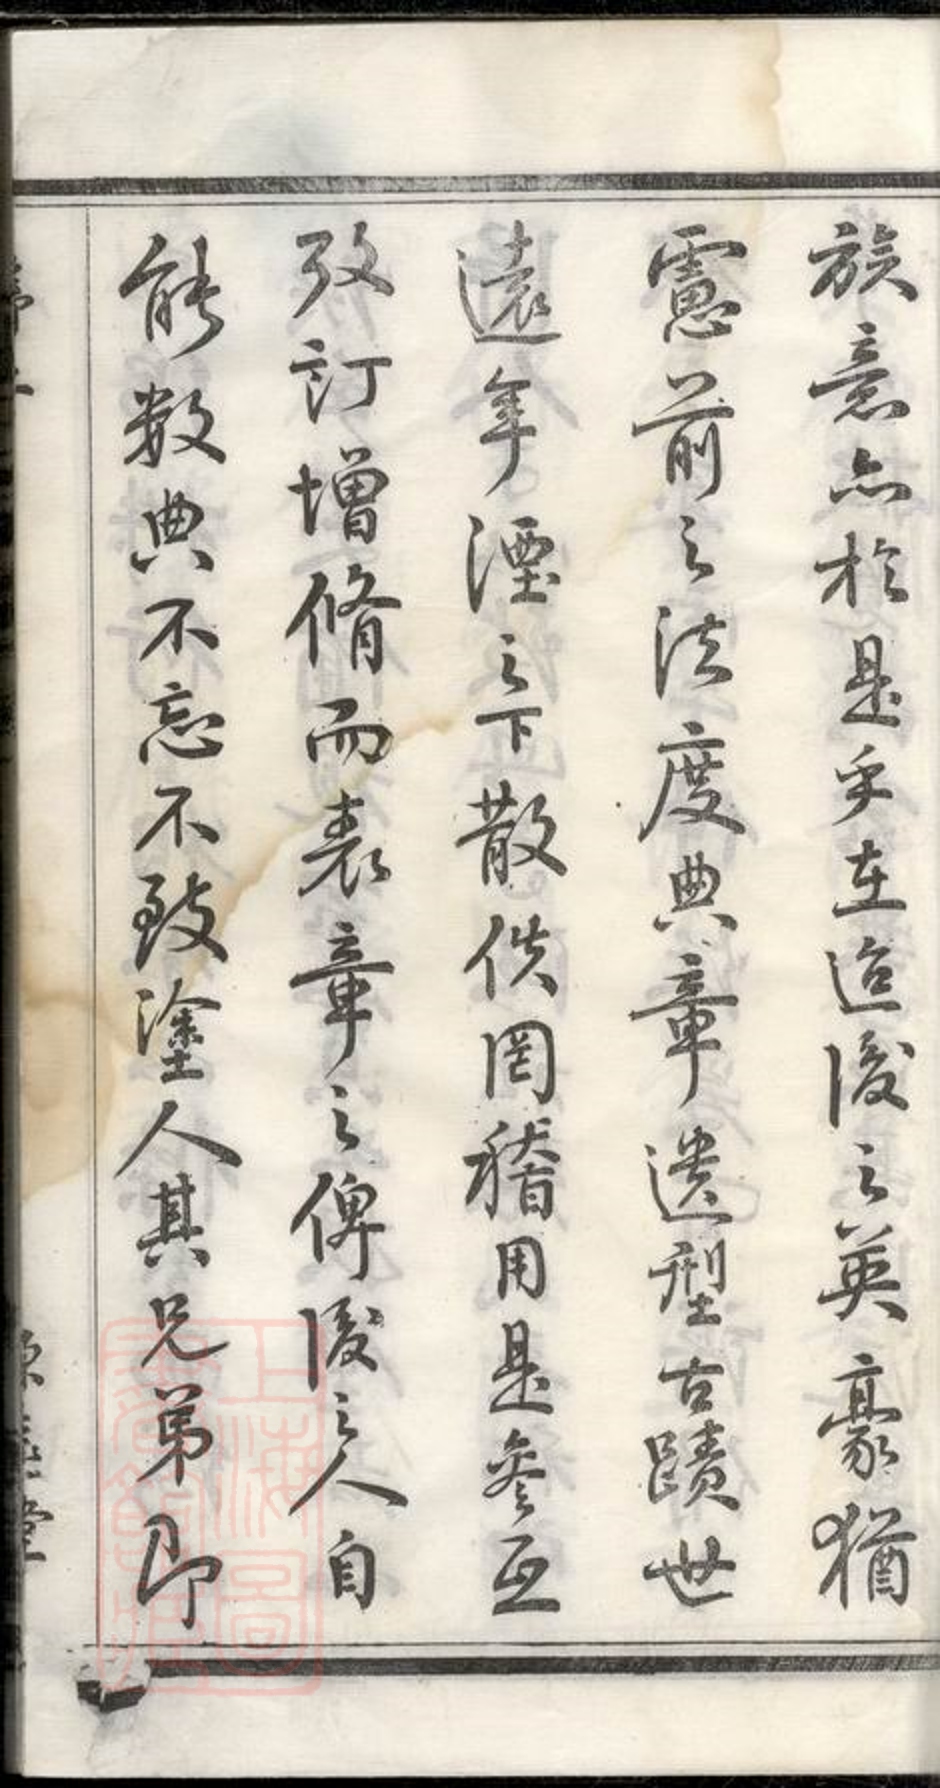 族意亦於是乎在迨後之英豪猶
慮前之法度典章遺型古蹟世
遠年湮之下散佚罔稽用是參互
攷訂增脩而表章之俾後之人自
能数典不忘不致塗人其兄弟即